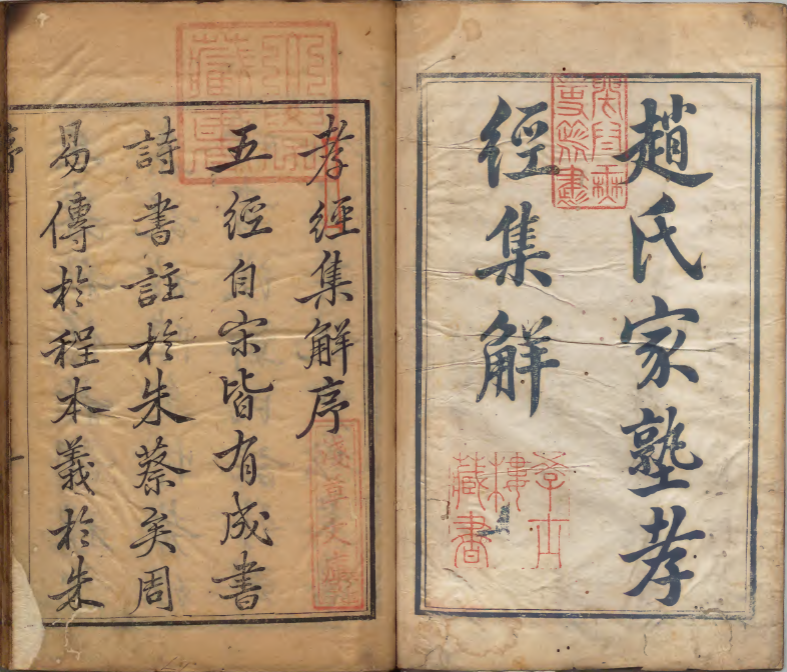 趙氏家塾孝
經集解
孝經集解序
五經自宋皆有成書
詩書註於朱蔡矣周
易傳於程本義於朱
藏書